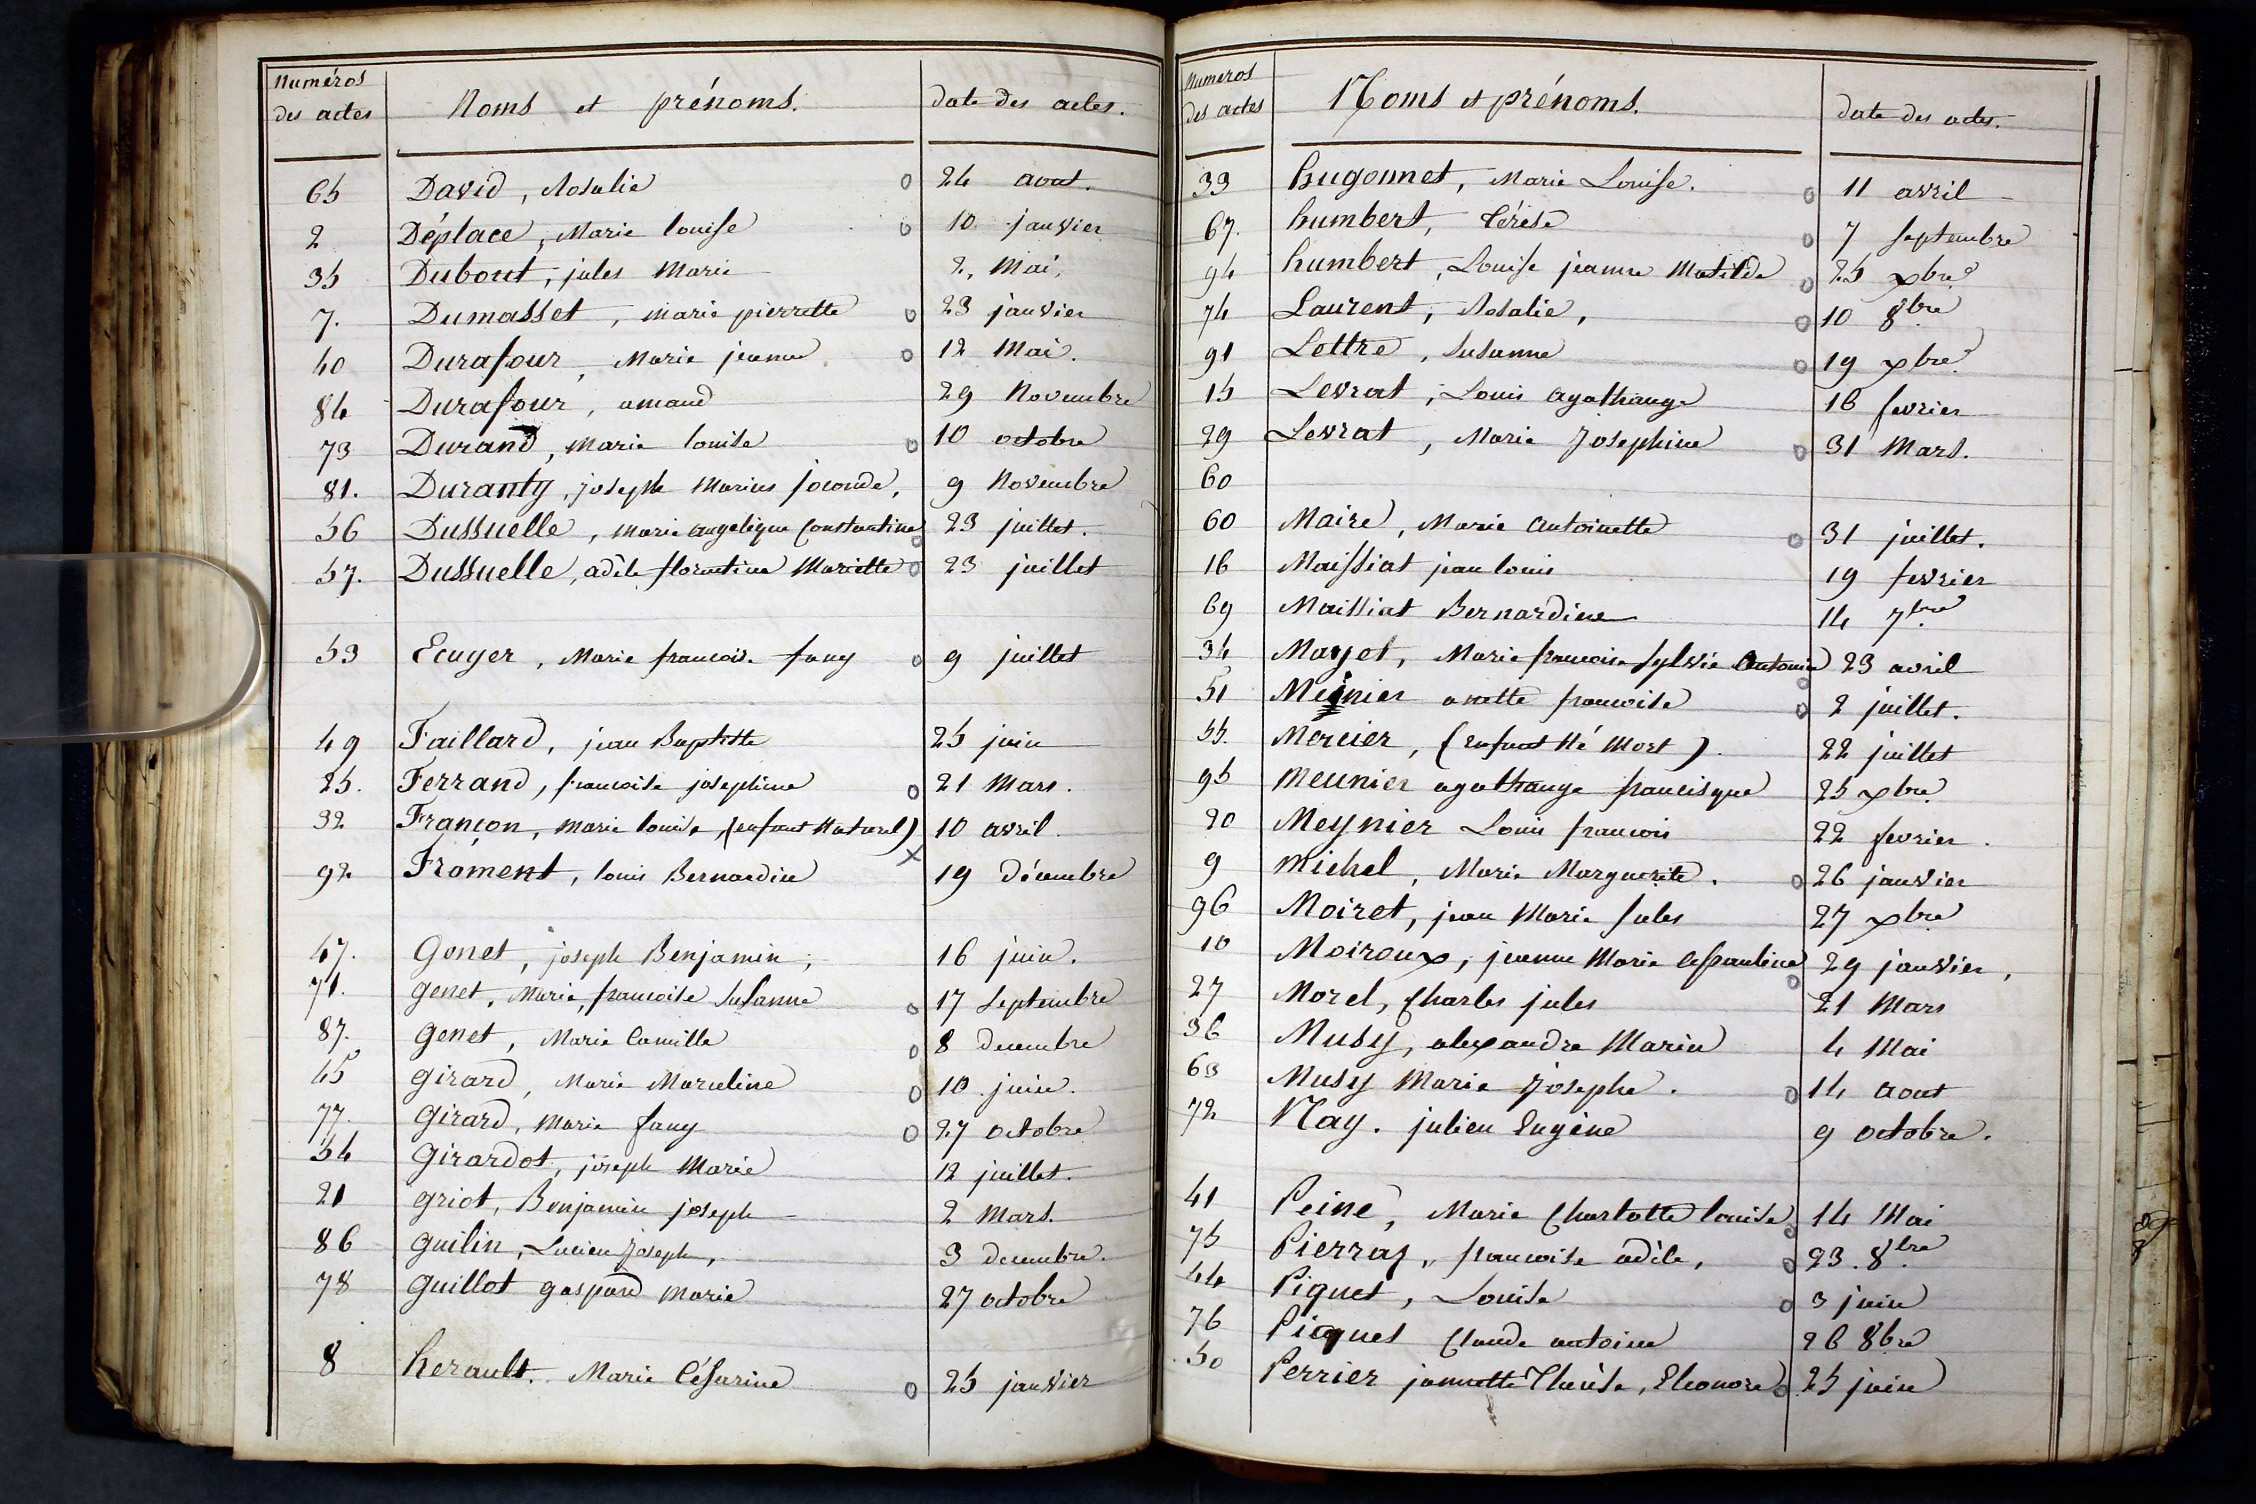 Numéros des actes Noms et prénoms. date des actes.
65 David, Rosalie 24 aout.
2 Déplace, Marie louise 10 janvier
35 Dubout, jules Marie 2, Mai,
7. Dumasset, marie pierrette 23 janvier
40 Durafour, Marie jeanne 12 Mai.
84 Durafour, amand 29 Novembre
73 Durand, marie louise 10 octobre
81. Duranty, joseph Marius joconde, 9 Novembre
56 Dussuelle, marie angelique Constantine 23 juillet.
57. Dussuelle, adèle florentine Mariette 23 juillet
53 Ecuyer, Marie francoise fany 9 juillet
49 Faillard, jean Baptiste 25 juin
25. Ferrand, francoise josephine 21 Mars.
32 Françon, marie louise, (enfant Naturel) 10 avril.
92 Froment, louis Bernardin 19 décembre
47. Gonet, joseph Benjamin, 16 juin.
71. genet, Marie, francoise Susanne 17 Septembre
87. genet, Marie Camille 8 decembre
45 girard, Marie Marceline 10 juin.
77. girard, Marie fany 27 octobre
54 girardot, joseph Marie 12 juillet.
21 griot, Benjamin joseph 2 Mars.
86 guilin, Lucien Joseph, 3 decembre.
78 guillot gaspard marie 27 octobre
8 herault. Marie Césarine 25 janvier
Numeros des actes Noms et prénoms. date des actes.
33 hugonnet, Marie Louise. 11 avril
67. humbert, Térèse 7 septembre
94 humbert, Louise jeanne Matilde 25 xbre
74 Laurent, Rosalie, 10 8bre
91 Lettre, Susanne 19 xbre
15 Levrat, Louis agathange 16 fevrier
29 Levrat, Marie Josephine 31 Mars.
60
60 Maire, Marie antoinette 31 juillet.
16 Maissiat jean louis 19 fevrier
69 Maissiat Bernardine 14 7bre
34 Mayet, Marie francoise Sylvie Antonia 23 avril
51 Meinier anette francoise 2 juillet.
55. Mercier, (enfant Né Mort) 22 juillet
95 Meunier agathange francisque 25 xbre
20 Meynier Louis francois 22 fevrier.
9 Michel, Marie Marguerite. 26 janvier
96 Moiret, jean Marie Jules 27 xbre
10 Moiroux, jeanne Marie 29 janvier,
27 Morel, Charles jules 21 Mars
36 Musy, alexandre Marin 4 Mai
63 Musy Marie Josephe. 14 aout
72 Nay. julien Eugène 9 octobre.
41 Peine, Marie Charlotte louise 14 Mai
75 francoise adèle, 23. 8bre
44 Piquet, Louise 3 juin
76 Piquet Claude antoine 26 8bre
50 Perrier jannette Therèse, Eleonore 25 juin